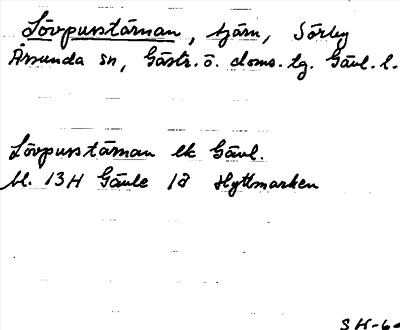 Lövpusstärnan, tjärn, Sörby
Årsunda sn, Gästr. ö. doms. tg. Gävl. l.
Lövpusstärnan ek Gävl.
bl. 13H Gävle 18 Hyttmarken
SH-6